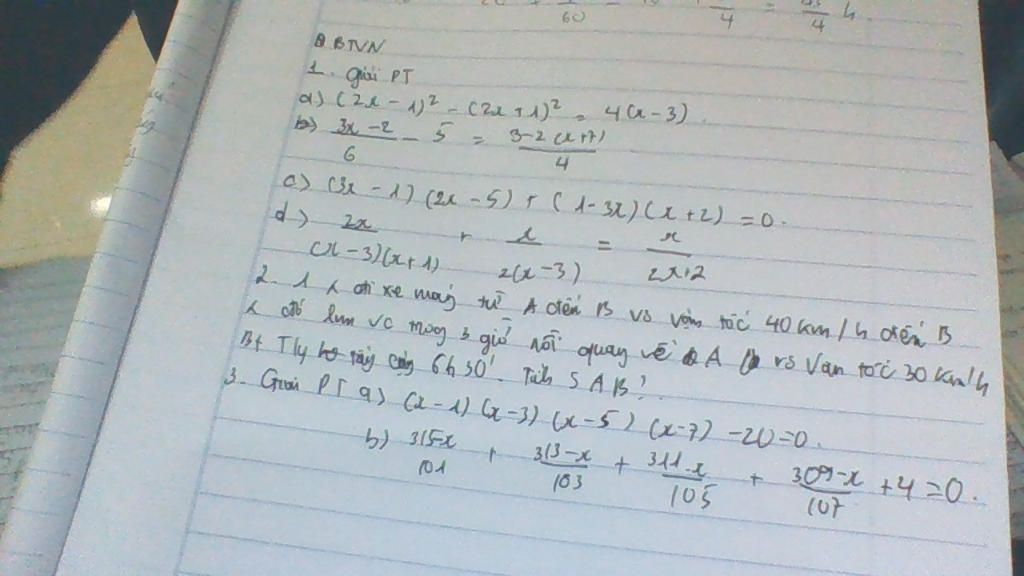 60 4 = 4 h
BTVN
1. giải PT
a) (2x - 1)² - (2x + 1)² = 4(x - 3).
b) (3x - 2)/6 - 5 = (3 - 2(x+7))/4
c) (3x - 1)(2x - 5) + (1 - 3x)(x + 2) = 0.
d) 2x/((x - 3)(x + 1)) + x/(2(x - 3)) = x/(2x + 2)
2. 1 đi xe máy từ A đến B vs vận tốc 40 km/h đến B
đó lm vc trong 3 giờ rồi quay về A vs vận tốc 30 km/h
Bt 6h 30'. Tính S AB?
3. Giải PT a) (x - 1)(x - 3)(x - 5)(x - 7) - 20 = 0.
b) (315-x)/101 + (313-x)/103 + (311-x)/105 + (309-x)/107 + 4 = 0.